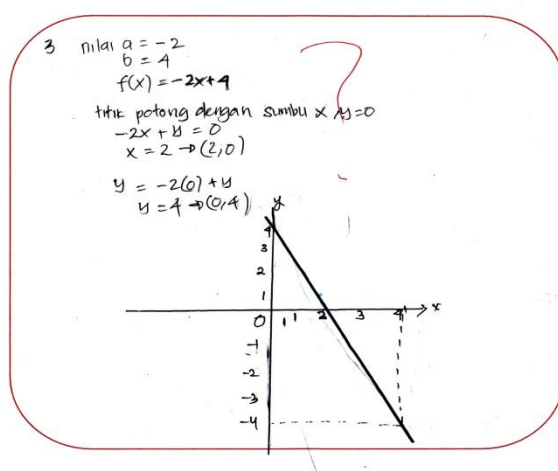 3 nilai a = -2
b = 4
f(x) = -2x+4
titik potong dengan sumbu x, y=0
-2x + y = 0
x = 2 → (2,0)
y = -2(0) + y
y = 4 → (0,4)
?
y
4
3
2
1
0 1 2 3 4 x
-1
-2
-3
-4